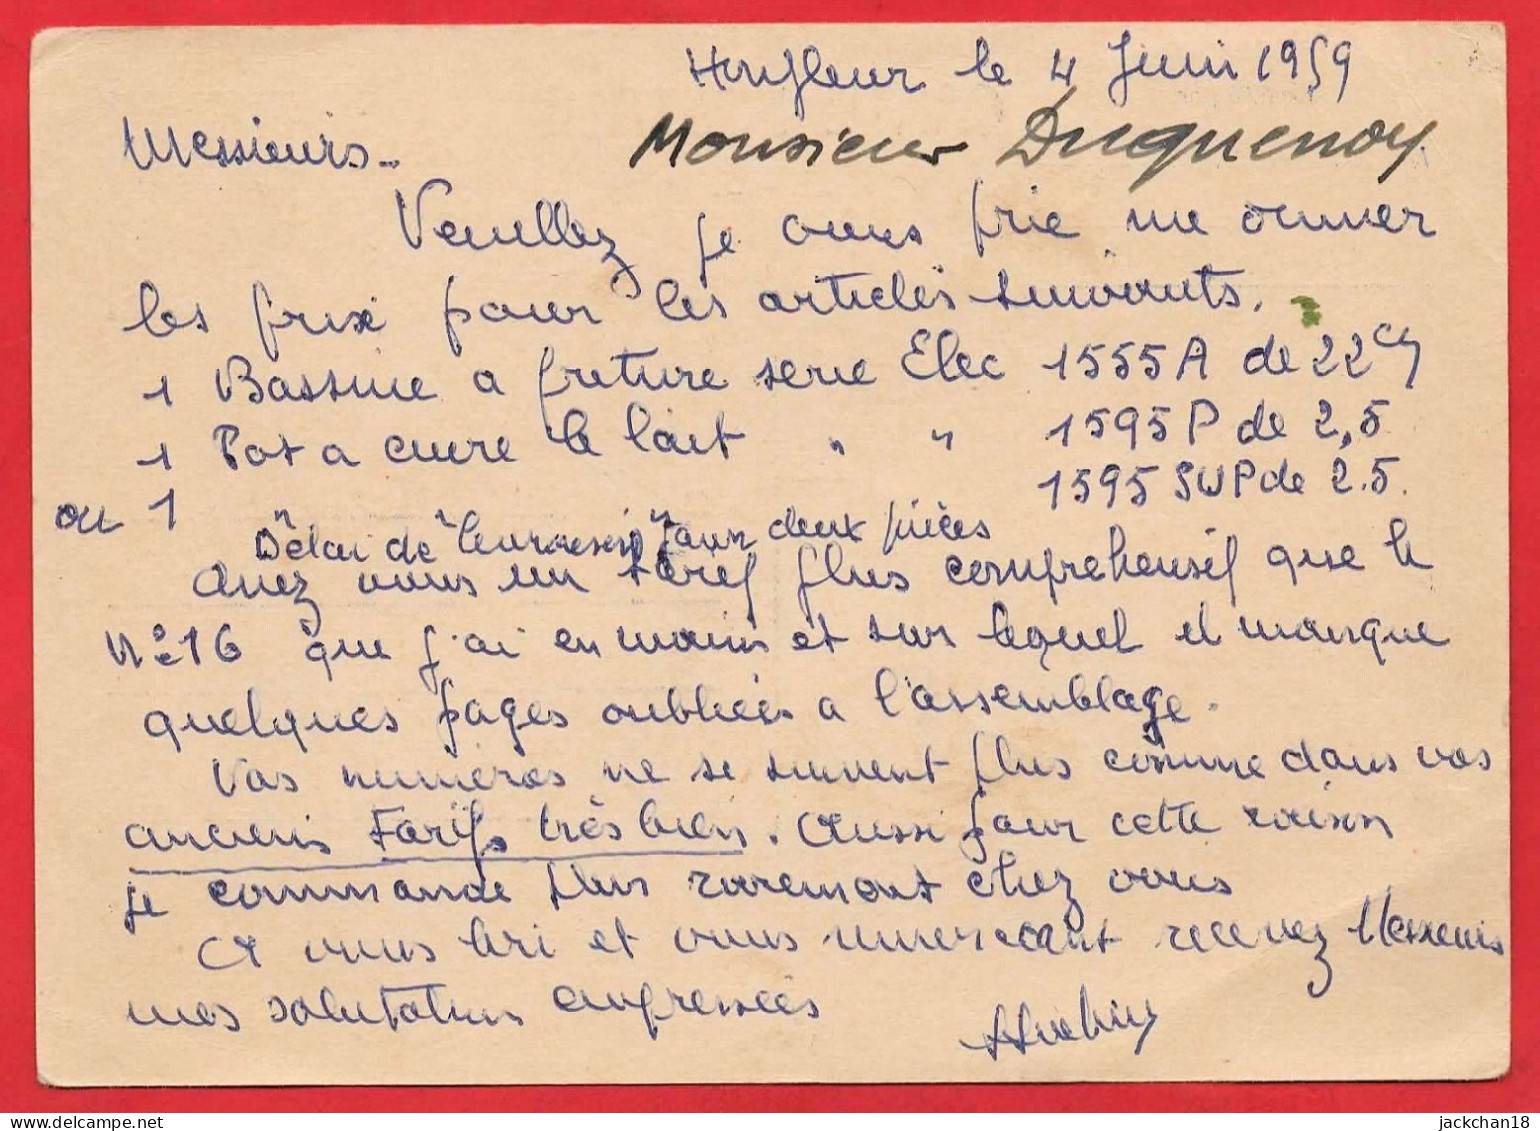 Honfleur le 4 Juin 1959
Monsieur Duquenoy
Messieurs.
Veuillez je vous prie me donner
les prix pour les articles suivants.
1 Bassine a friture serie Elec 1555A de 22 cm
1 Pot a cuire le lait " " 1595 P de 2,5
ou 1 " " " 1595 SWP de 2.5.
Délai de livraison pour deux pièces
Avez vous un tarif plus comprehensif que le
N° 16 que j'ai en mains et sur lequel il manque
quelques pages oubliées a l'assemblage.
Vos numeros ne se suivent plus comme dans vos
anciens Tarifs très bien. Aussi pour cette raison
je commande plus rarement chez vous
A vous lire et vous remerciant recevez Messieurs
mes salutations empressées
jackchan18